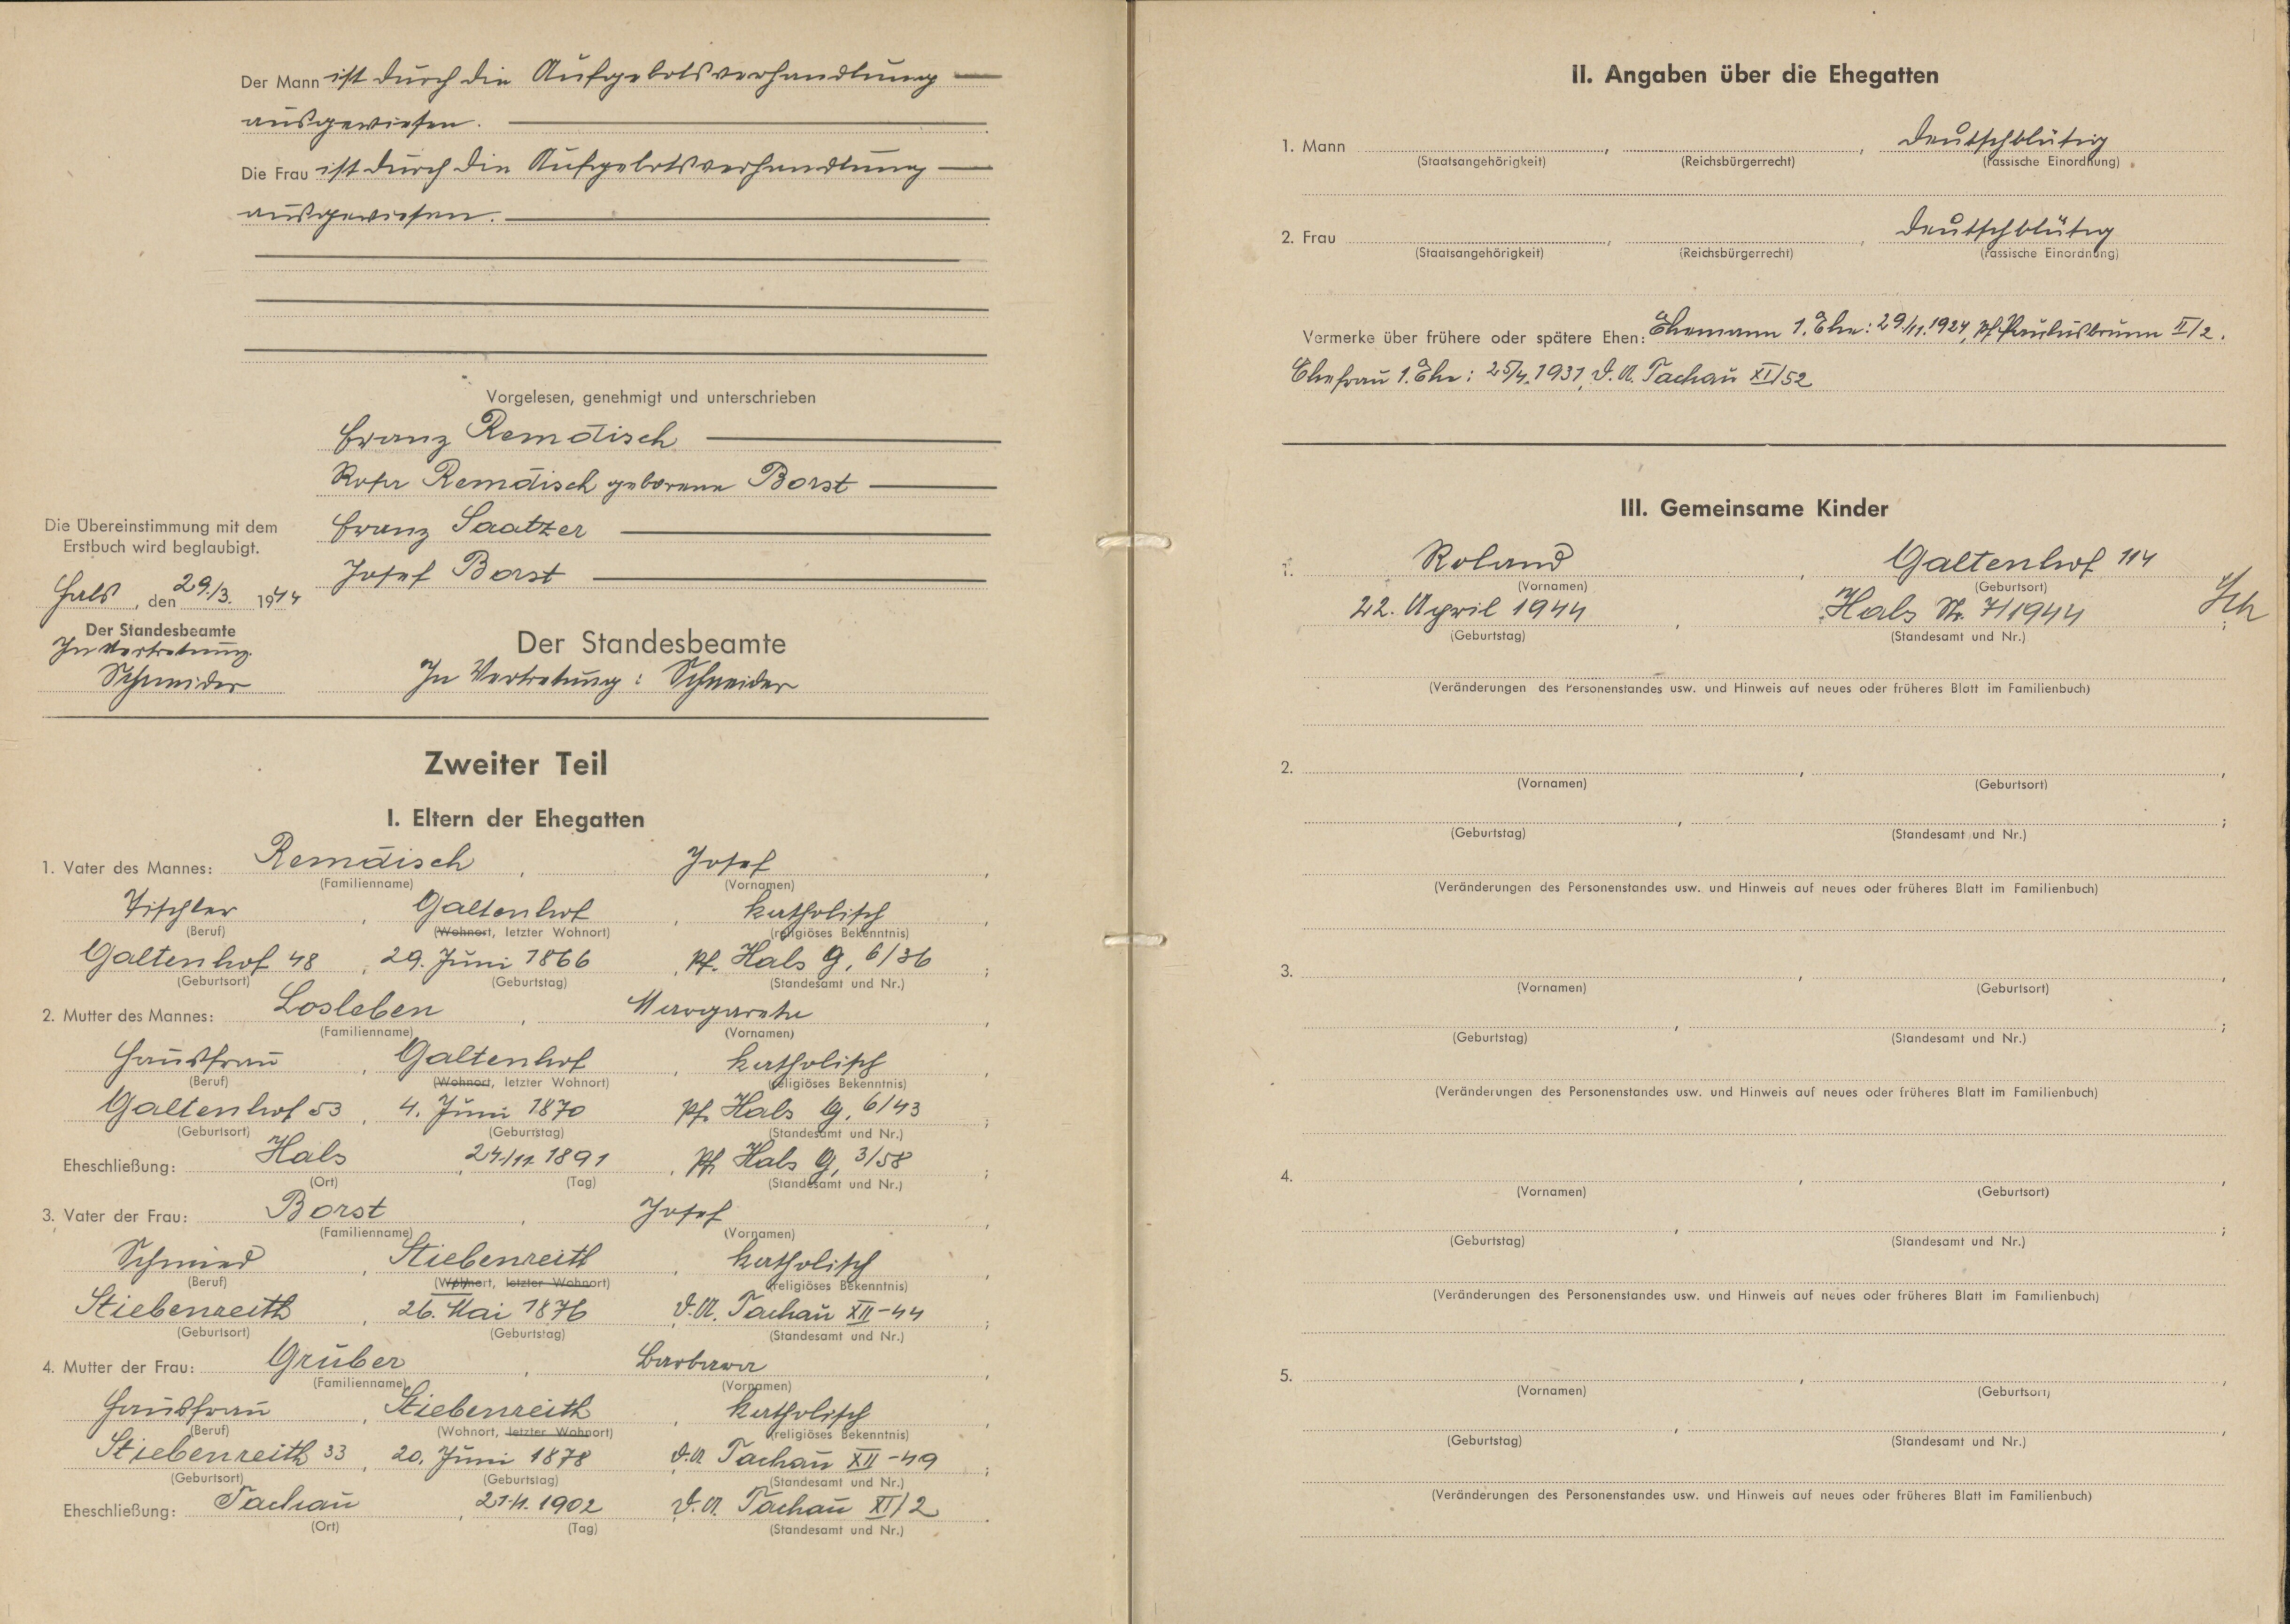 Der Mann ist durch die Aufgebotsverhandlung
ausgewiesen.
Die Frau ist durch die Aufgebotsverhandlung
ausgewiesen.
Vorgelesen, genehmigt und unterschrieben
Franz Remdisch
Rosa Remdisch geborene Borst
Franz Saatzer
Josef Borst
Die Übereinstimmung mit dem
Erstbuch wird beglaubigt.
Hals, den 29./3. 1944
Der Standesbeamte
In Vertretung
Schneider
Der Standesbeamte
In Vertretung: Schneider
Zweiter Teil
I. Eltern der Ehegatten
1. Vater des Mannes: Remdisch, Josef,
(Familienname) (Vornamen)
Tischler, Galtenhof, katholisch,
(Beruf) (Wohnort, letzter Wohnort) (religiöses Bekenntnis)
Galtenhof 48, 29. Juni 1866, Pf. Hals G, 6/36;
(Geburtsort) (Geburtstag) (Standesamt und Nr.)
2. Mutter des Mannes: Losleben, Margarete,
(Familienname) (Vornamen)
Hausfrau, Galtenhof, katholisch,
(Beruf) (Wohnort, letzter Wohnort) (religiöses Bekenntnis)
Galtenhof 53, 4. Juni 1870 Pf. Hals G, 6/43;
(Geburtsort) (Geburtstag) (Standesamt und Nr.)
Eheschließung: Hals, 24./11. 1891, Pf. Hals G, 3/58;
(Ort) (Tag) (Standesamt und Nr.)
3. Vater der Frau: Borst, Josef,
(Familienname) (Vornamen)
Schmied, Stiebenreith, katholisch,
(Beruf) (Wohnort, letzter Wohnort) (religiöses Bekenntnis)
Stiebenreith, 26. Mai 1876, D.A. Tachau XII-44;
(Geburtsort) (Geburtstag) (Standesamt und Nr.)
4. Mutter der Frau: Gruber, Barbara,
(Familienname) (Vornamen)
Hausfrau, Stiebenreith, katholisch,
(Beruf) (Wohnort, letzter Wohnort) (religiöses Bekenntnis)
Stiebenreith 33, 20. Juni 1878 D.A. Tachau XII-49;
(Geburtsort) (Geburtstag) (Standesamt und Nr.)
Eheschließung: Tachau, 1902, D.A. Tachau XI/2.
(Ort) (Tag) (Standesamt und Nr.)
II. Angaben über die Ehegatten
1. Mann , , deutschblütig
(Staatsangehörigkeit) (Reichsbürgerrecht) (rassische Einordnung)
2. Frau , , deutschblütig
(Staatsangehörigkeit) (Reichsbürgerrecht) (rassische Einordnung)
Vermerke über frühere oder spätere Ehen: Ehemann 1. Ehe: 29./11. 1924, Pf. Paulusbrunn II/2.
Ehefrau 1. Ehe: 25/4. 1931, D.A. Tachau XI/52
III. Gemeinsame Kinder
1. Roland, Galtenhof 114
(Vornamen) (Geburtsort)
22. April 1944, Hals Nr. 7/1944;
(Geburtstag) (Standesamt und Nr.)
(Veränderungen des Personenstandes usw. und Hinweis auf neues oder früheres Blatt im Familienbuch)
2. , ,
(Vornamen) (Geburtsort)
, ;
(Geburtstag) (Standesamt und Nr.)
(Veränderungen des Personenstandes usw. und Hinweis auf neues oder früheres Blatt im Familienbuch)
3. , ,
(Vornamen) (Geburtsort)
, ;
(Geburtstag) (Standesamt und Nr.)
(Veränderungen des Personenstandes usw. und Hinweis auf neues oder früheres Blatt im Familienbuch)
4. , ,
(Vornamen) (Geburtsort)
, ;
(Geburtstag) (Standesamt und Nr.)
(Veränderungen des Personenstandes usw. und Hinweis auf neues oder früheres Blatt im Familienbuch)
5. , ,
(Vornamen) (Geburtsort)
, ,
(Geburtstag) (Standesamt und Nr.)
(Veränderungen des Personenstandes usw. und Hinweis auf neues oder früheres Blatt im Familienbuch)